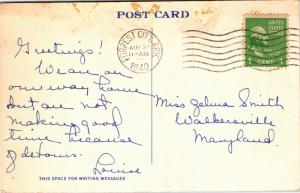 POST CARD
FORREST CITY, ARK.
AUG 2
11-AM
1940
1 CENT 1
Greetings!
We are on
our way home
but are not
making good
time because
of detours.
Louise
Miss Zelma Smith
Walkersville
Maryland.
THIS SPACE FOR WRITING MESSAGES